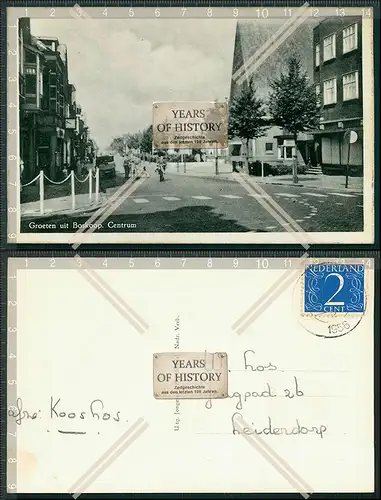 1 2 3 4 5 6 7 8 9 10 11 12 13 14
YEARS
OF HISTORY
Zeitgeschichte
aus den letzten 100 Jahren.
Groeten uit Boskoop. Centrum
1 2 3 4 5 6 7 8 9 10 11 12 13 14
NEDERLAND
2
CENT
1956
Nadr. Verb.
YEARS
OF HISTORY
Zeitgeschichte
aus den letzten 100 Jahren.
Hos
pad 26
Leiderdorp
afz: Koos Hos.